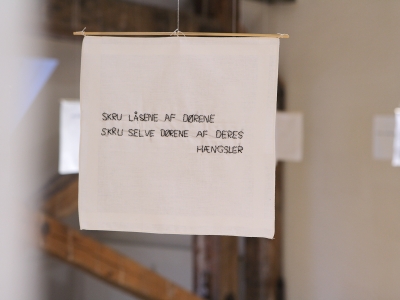 SKRU LÅSENE AF DØRENE
SKRU SELVE DØRENE AF DERES
HÆNGSLER